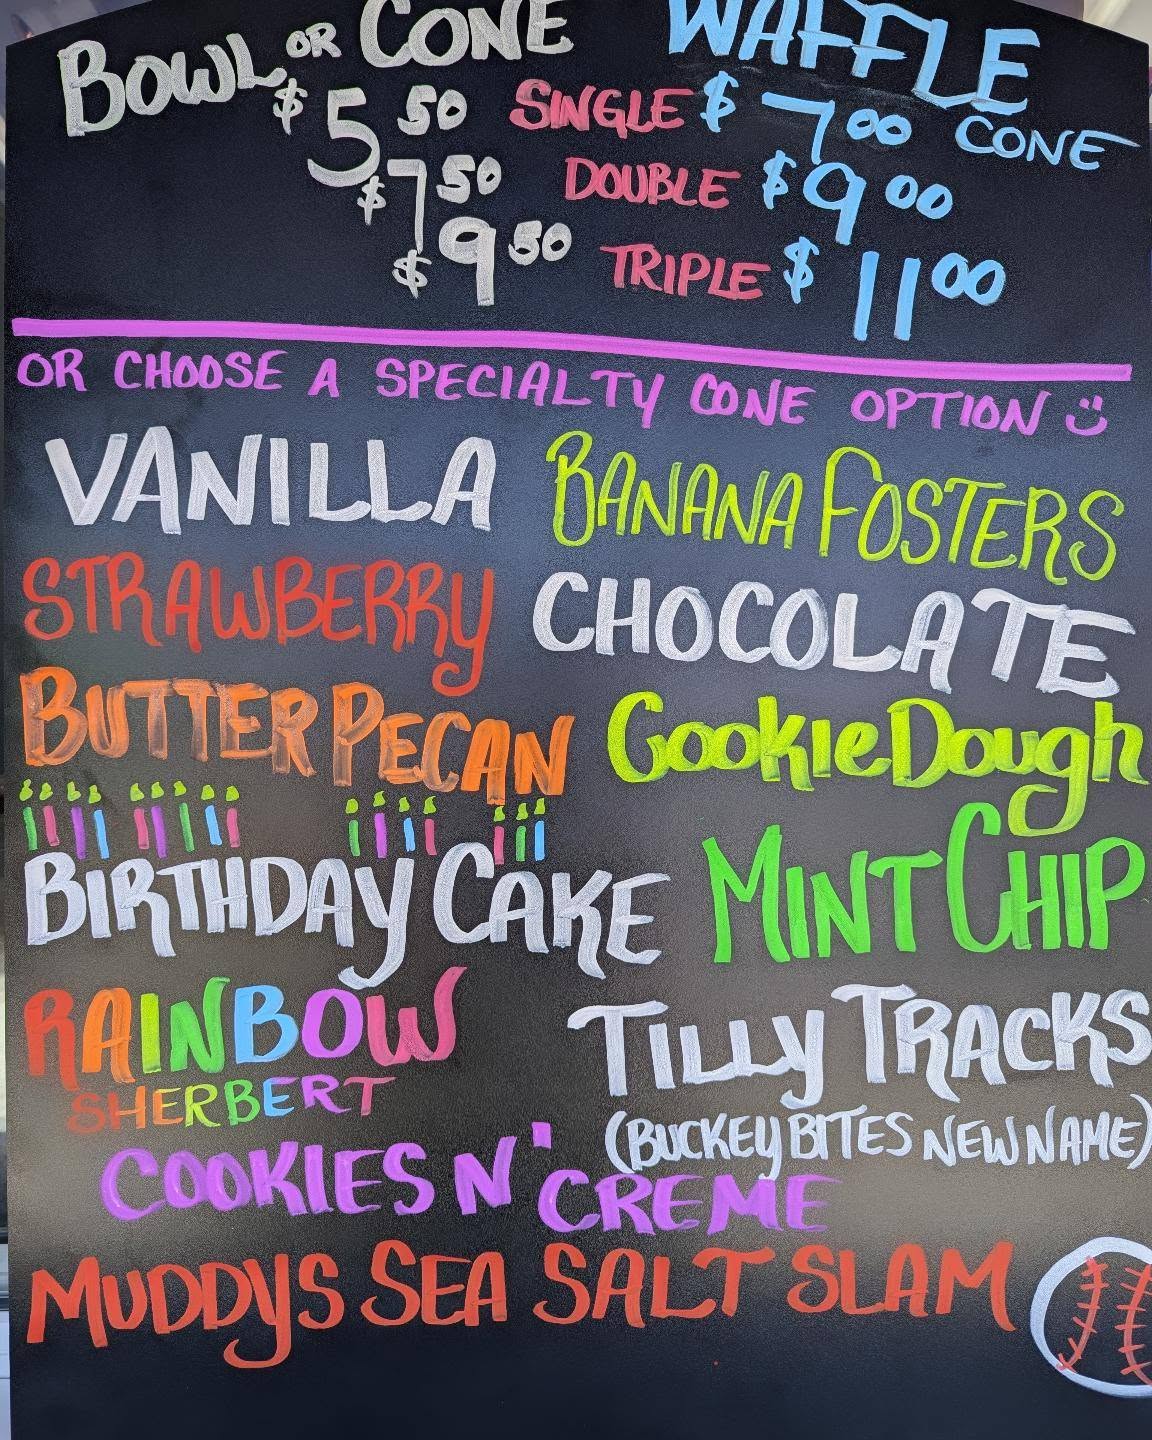 BOWL OR CONE WAFFLE CONE
$5 50 SINGLE $7 00
$7 50 DOUBLE $9 00
$9 50 TRIPLE $11 00
OR CHOOSE A SPECIALTY CONE OPTION
VANILLA BANANA FOSTERS
STRAWBERRY CHOCOLATE
BUTTER PECAN Cookie Dough
BIRTHDAY CAKE MINT CHIP
RAINBOW TILLY TRACKS
SHERBERT (BUCKEY BITES NEW NAME)
COOKIES N' CREME
MUDDYS SEA SALT SLAM